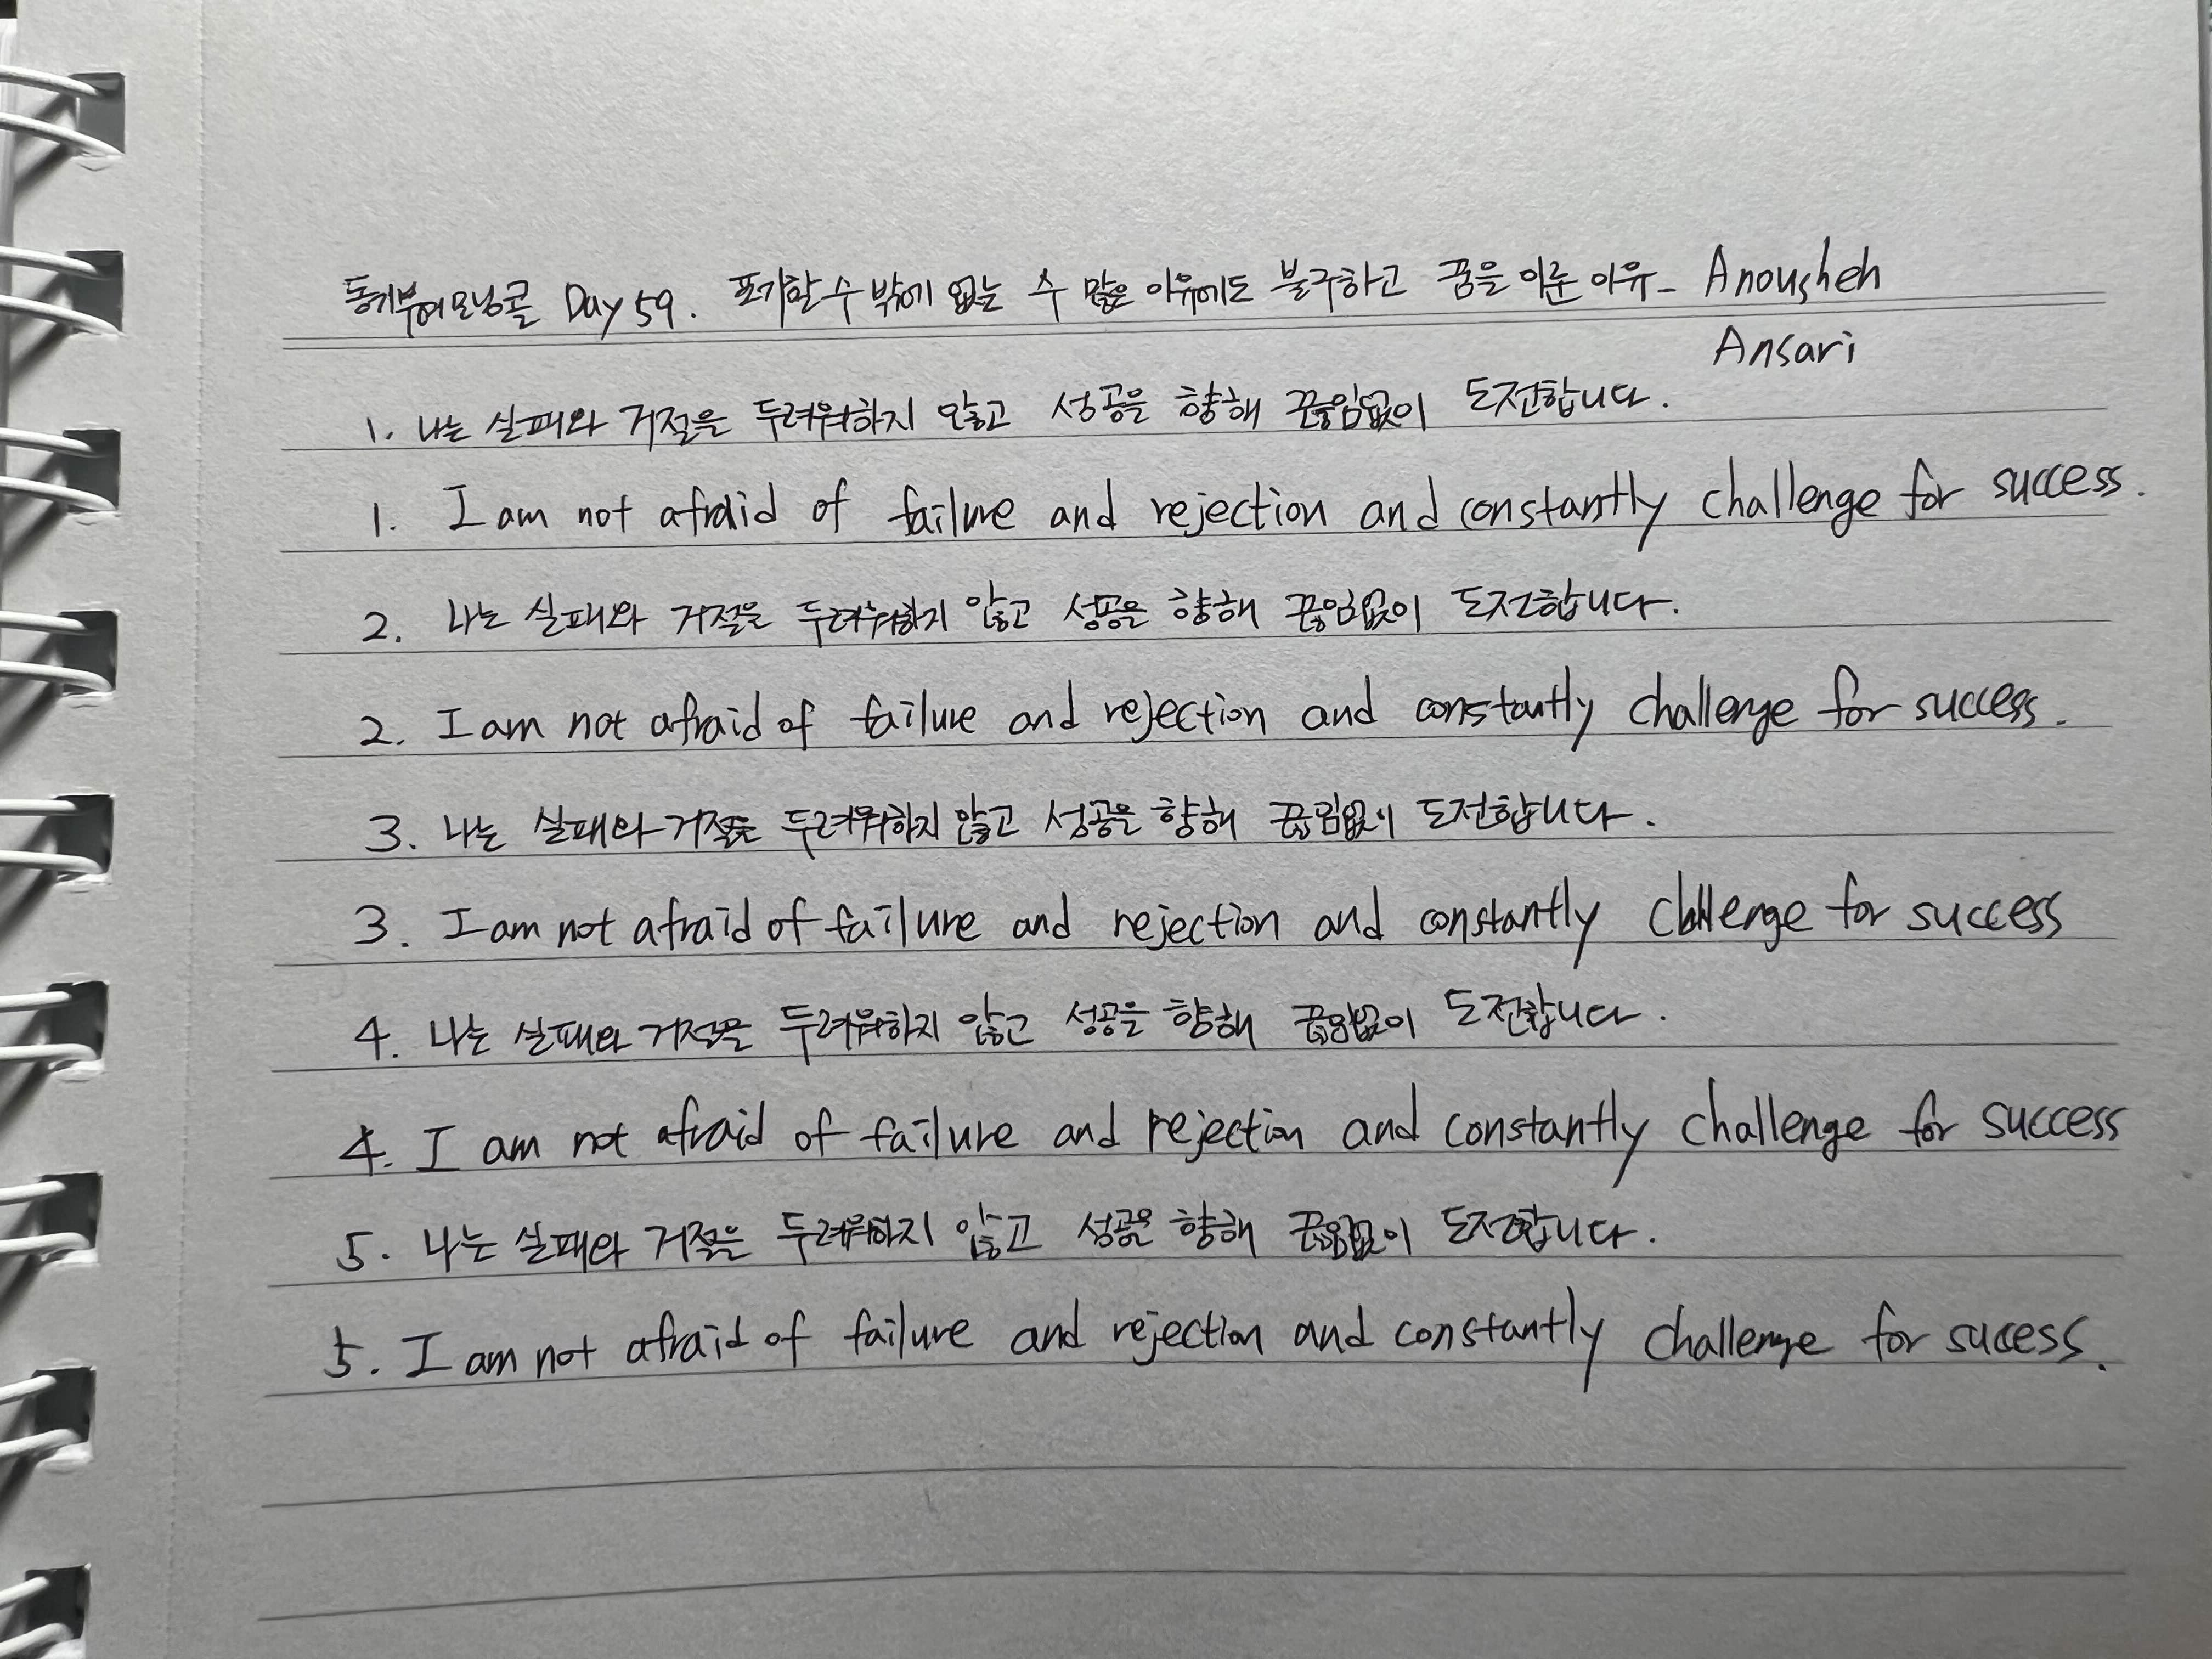 동기부여모닝콜 Day 59. 포기할 수 밖에 없는 수 많은 이유에도 불구하고 꿈을 이룬 이유- Anousheh
Ansari
1. 나는 실패와 거절을 두려워하지 않고 성공을 향해 끊임없이 도전합니다.
1. I am not afraid of failure and rejection and constantly challenge for success.
2. 나는 실패와 거절을 두려워하지 않고 성공을 향해 끊임없이 도전합니다.
2. I am not afraid of failure and rejection and constantly challenge for success.
3. 나는 실패와 거절을 두려워하지 않고 성공을 향해 끊임없이 도전합니다.
3. I am not afraid of failure and rejection and constantly challenge for success
4. 나는 실패와 거절을 두려워하지 않고 성공을 향해 끊임없이 도전합니다.
4. I am not afraid of failure and rejection and constantly challenge for success
5. 나는 실패와 거절을 두려워하지 않고 성공을 향해 끊임없이 도전합니다.
5. I am not afraid of failure and rejection and constantly challenge for sucess.